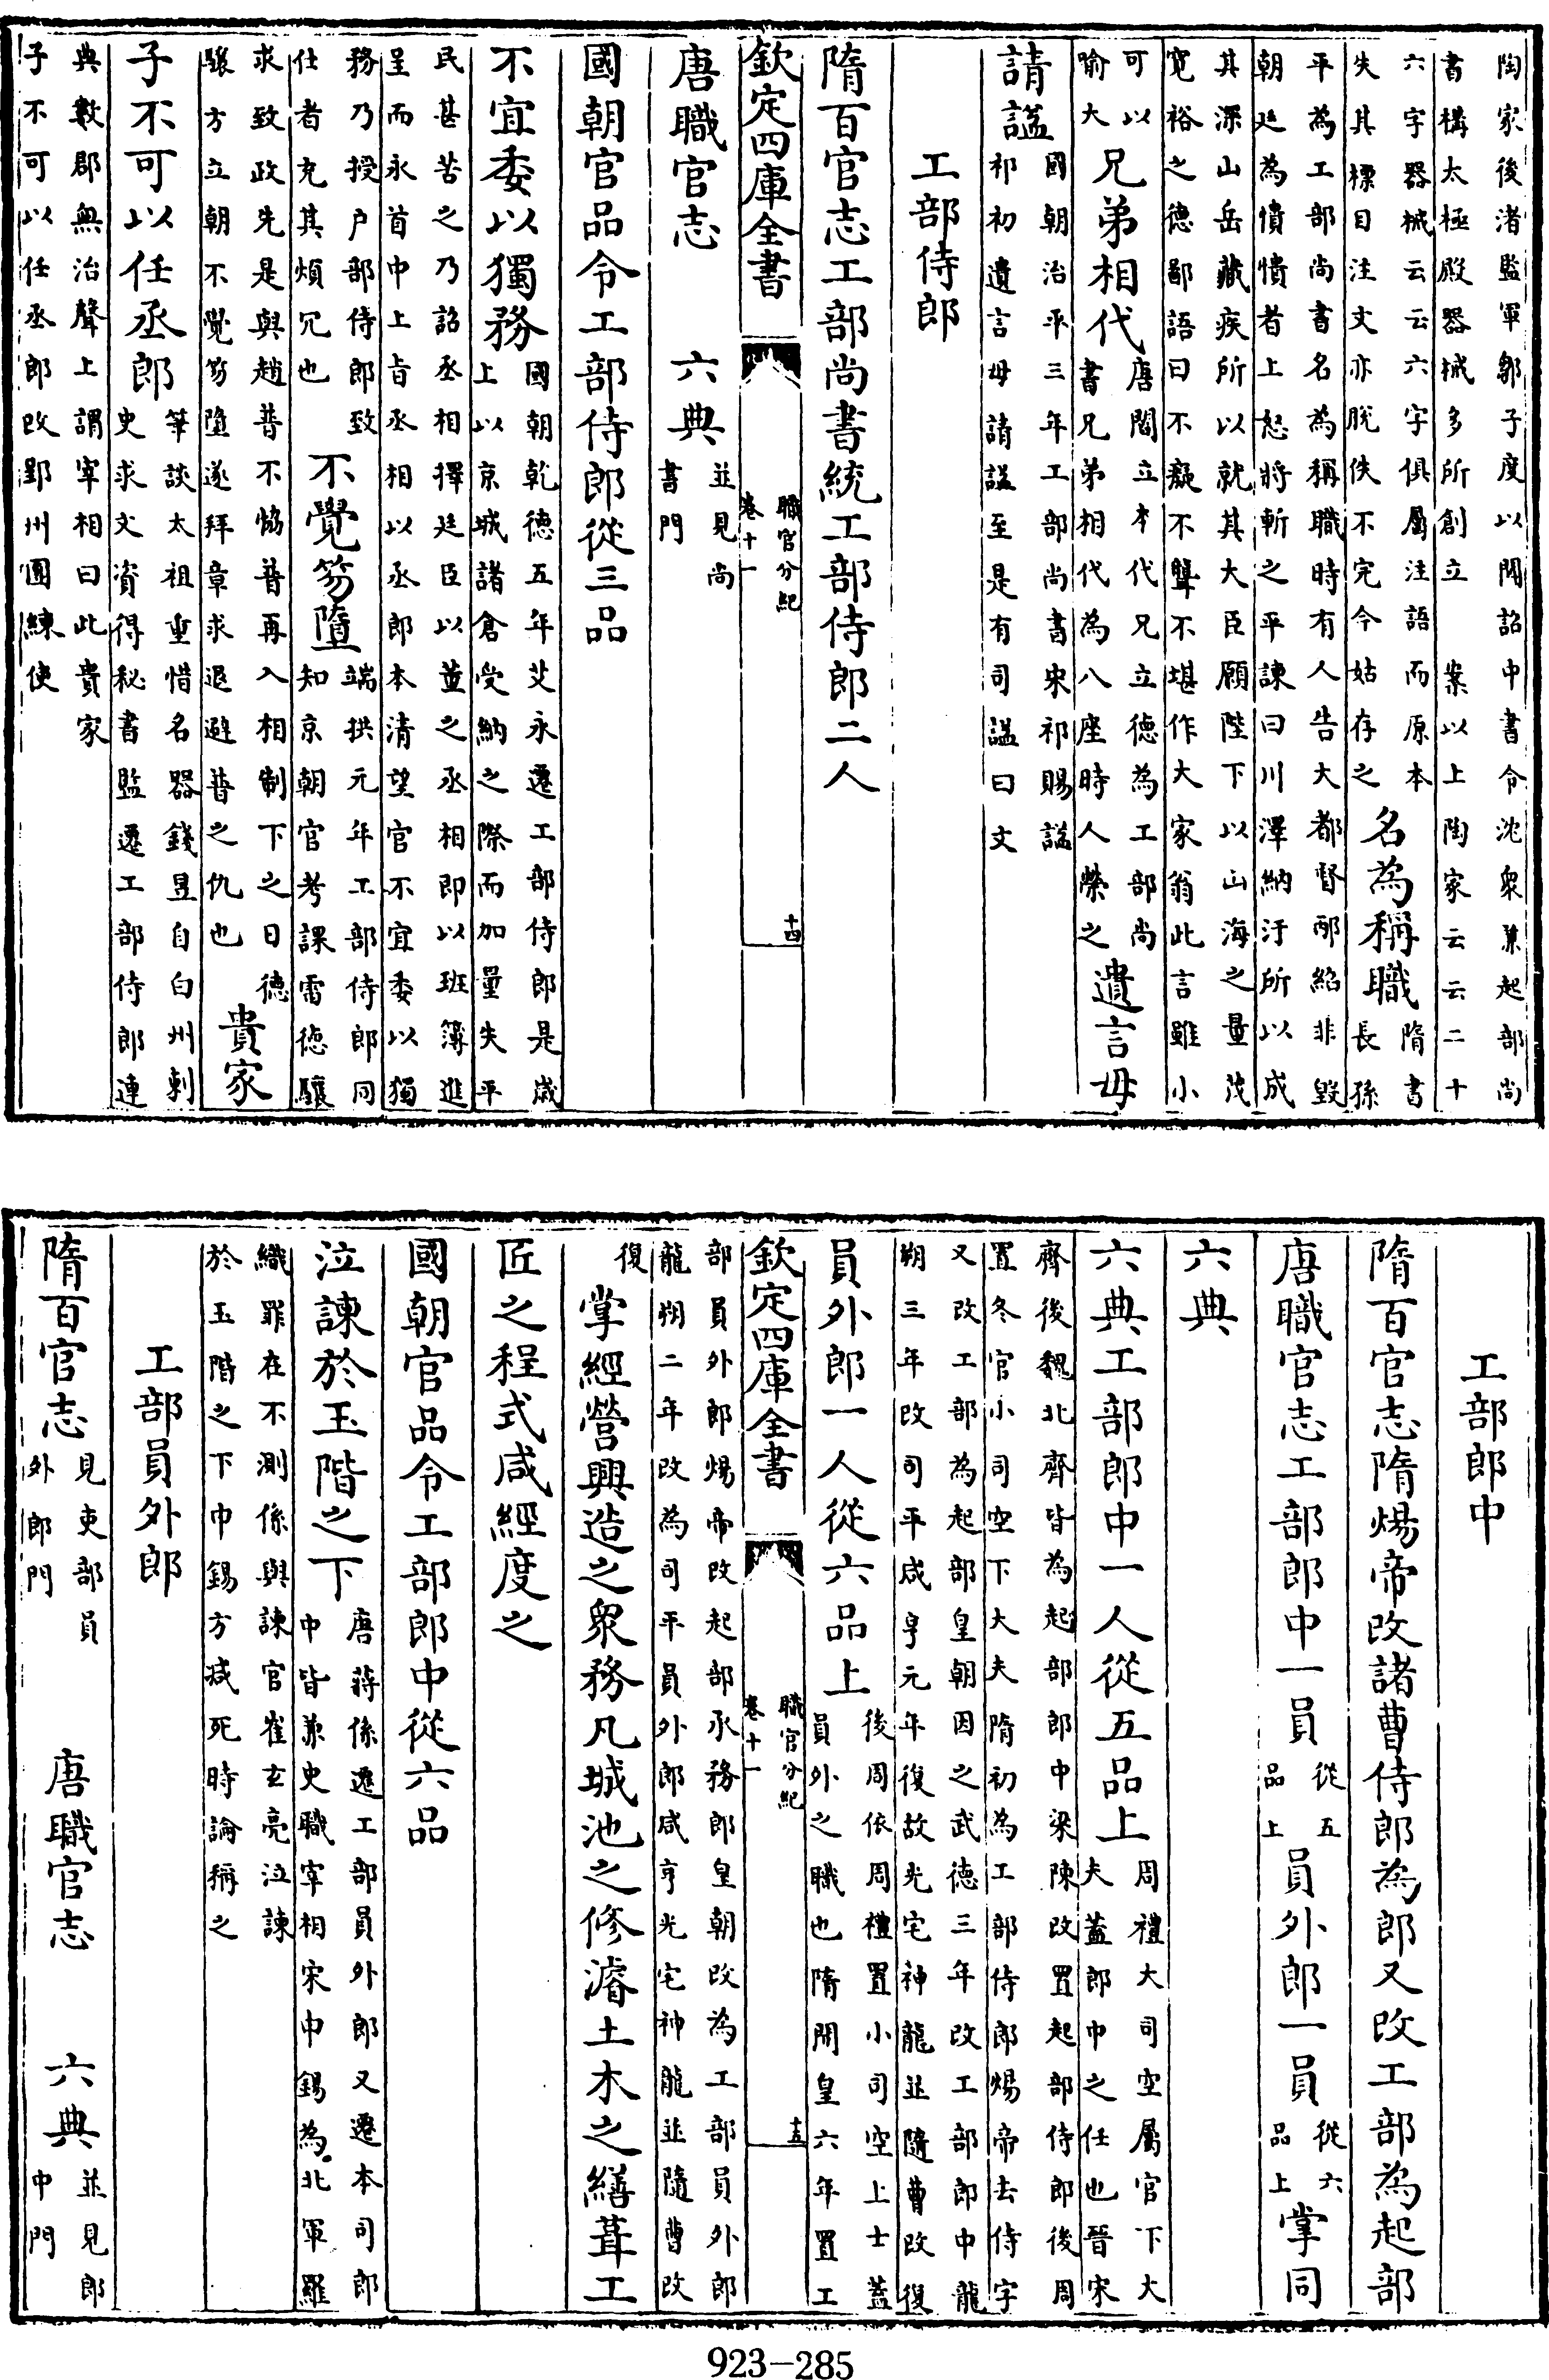 陶家後渚監軍鄒子度以聞詔中書令沈衆兼起部尚書構太極殿器械多所創立　案以上陶家云云二十
六字器械云云六字俱屬注語而原本失其標目注文亦脫佚不完今姑存之名為稱職隋書長孫
平為工部尚書名為稱職時有人告大都督邴紹非毀朝廷為憒憒者上怒將斬之平諫曰川澤納汙所以成
其深山岳藏疾所以就其大臣願陛下以山海之量茂寛裕之德鄙語曰不癡不聾不堪作大家翁此言雖小
可以喻大兄弟相代唐閻立本代兄立德為工部尚書兄弟相代為八座時人榮之遺言毋
請諡國朝治平三年工部尚書宋祁賜諡祁初遺言毋請諡至是有司諡曰文
工部侍郎
隋百官志工部尚書統工部侍郎二人
欽定四庫全書　職官分紀卷十一　十四
唐職官志　六典並見尚書門
國朝官品令工部侍郎從三品
不宜委以獨務國朝乾德五年艾永遷工部侍郎是歲上以京城諸倉受納之際而加量失平
民甚苦之乃詔丞相擇廷臣以董之丞相即以班簿進呈而永首中上旨丞相以丞郎本清望官不宜委以獨
務乃授户部侍郎致仕者充其煩冗也不覺笏墮端拱元年工部侍郎同知京朝官考課雷德驤
求致政先是與趙普不恊普再入相制下之日德驤方立朝不覺笏墮遂拜章求退避普之仇也貴家
子不可以任丞郎筆談太祖重惜名器錢昱自白州刺史求文資得秘書監遷工部侍郎連
典數郡無治聲上謂宰相曰此貴家子不可以任丞郎改郢州團練使
工部郎中
隋百官志隋煬帝改諸曹侍郎為郎又改工部為起部
唐職官志工部郎中一員從五品上員外郎一員從六品上掌同
六典
六典工部郎中一人從五品上周禮大司空屬官下大夫蓋郎中之任也晉宋
齊後魏北齊皆為起部郎中梁陳改置起部侍郎後周置冬官小司空下大夫隋初為工部侍郎煬帝去侍字
又改工部為起部皇朝因之武德三年改工部郎中龍朔三年改司平咸亨元年復故光宅神龍並隨曹改復
員外郎一人從六品上後周依周禮置小司空上士蓋員外之職也隋開皇六年置工
欽定四庫全書　職官分紀卷十一　十五
部員外郎煬帝改起部承務郎皇朝改為工部員外郎龍朔二年改為司平員外郎咸亨光宅神龍並隨曹改
復掌經營興造之衆務凡城池之修濬土木之繕葺工
匠之程式咸經度之
國朝官品令工部郎中從六品
泣諫於玉階之下唐蔣係遷工部員外郎又遷本司郎中皆兼史職宰相宋申錫為北軍羅
織罪在不測係與諫官崔玄亮泣諫於玉階之下申錫方減死時論稱之
工部員外郎
隋百官志見吏部員外郎門　唐職官志　六典並見郎中門
923-285